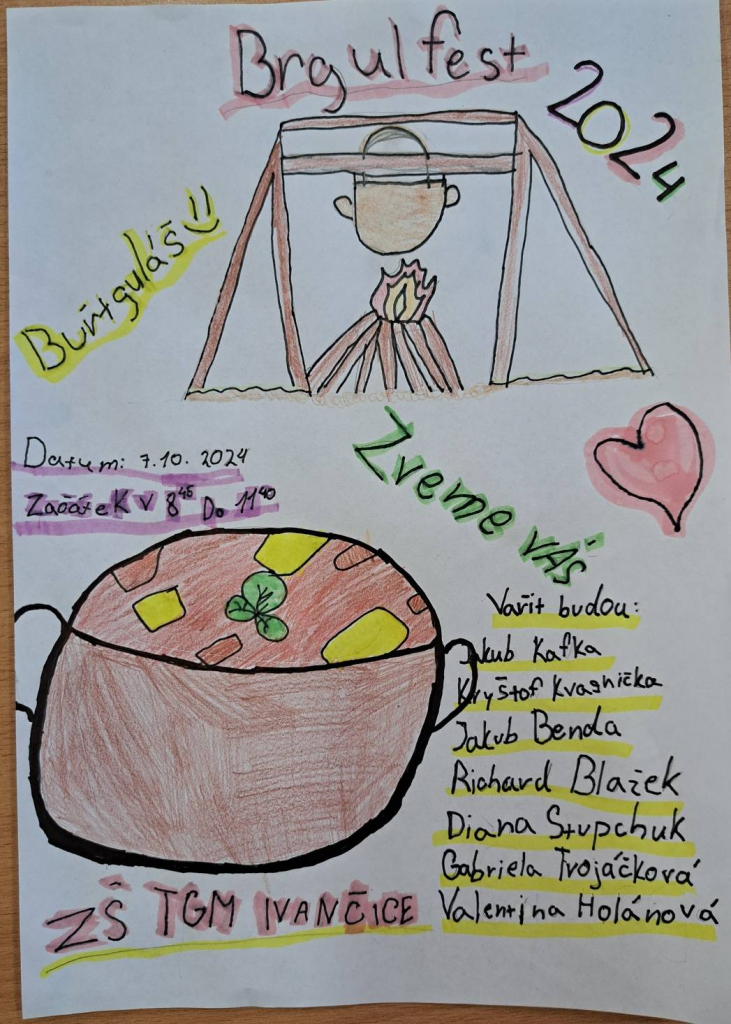 Brgulfest
2024
Buřtguláš
Datum: 7.10. 2024
Začátek v 8⁴⁵ Do 11⁴⁰
Zveme vás
Vařit budou:
Jakub Kafka
Kryštof Kvasnička
Jakub Benda
Richard Blažek
Diana Stupchuk
Gabriela Trojáčková
Valentina Holánová
ZŠ TGM IVANČICE